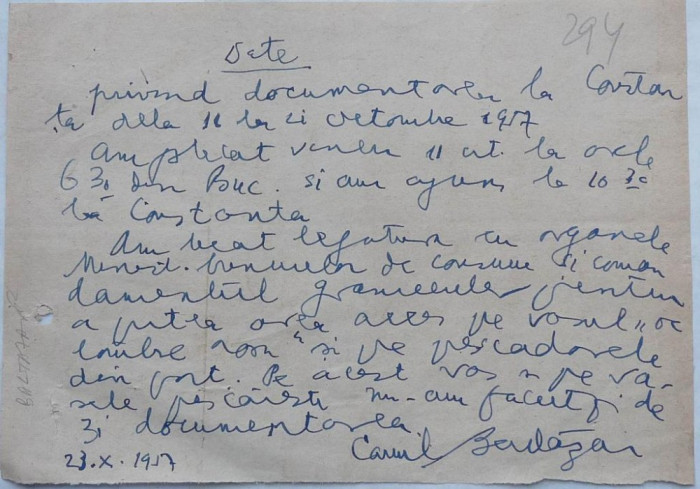 294
Date
privind documentarea la Constan
ța dela 11 la 21 octombrie 1957
Am plecat vineri 11 oct. la orele
6 30 din Buc. si am ajuns la 10 30
la Constanta
Am luat legatura cu organele
Minist. bunurilor de consum si coman
damentul granicerilor pentru
a putea avea acces pe vasul "Oc
tombrie rosu" si pe pescadoarele
din port. Pe acest vas si pe va-
sele pescaresti mi-am facut de
zi documentarea.
23.X.1957
BALTAZAR